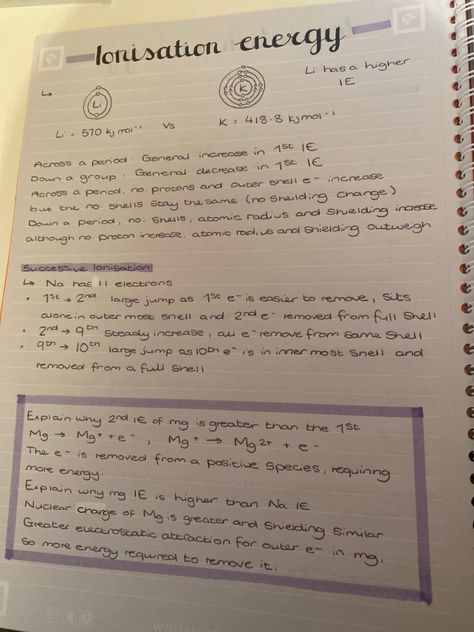 Ionisation energy
Li has a higher
IE
↳
Li
K
Li = 570 kJ mol⁻¹ vs K = 418.8 kJ mol⁻¹
Across a period: General increase in 1st IE
Down a group: General decrease in 1st IE
Across a period, no. protons and outer shell e⁻ increase
but the no. shells stay the same (no sheilding change)
Down a period, no. shells, atomic radius and shielding increase
although no. proton increase, atomic radius and shielding outweigh
Successive Ionisation
↳ Na has 11 electrons
• 1st → 2nd large jump as 1st e⁻ is easier to remove, sits
alone in outer most shell and 2nd e⁻ removed from full shell
• 2nd → 9th steady increase, all e⁻ remove from same shell
• 9th → 10th large jump as 10th e⁻ is in inner most shell and
removed from a full shell
Explain why 2nd IE of mg is greater than the 1st
Mg → Mg⁺ + e⁻ , Mg⁺ → Mg²⁺ + e⁻
The e⁻ is removed from a positive species, requiring
more energy.
Explain why mg IE is higher than Na IE
Nuclear charge of Mg is greater and shielding similar
Greater electrostatic attraction for outer e⁻ in mg,
so more energy required to remove it.